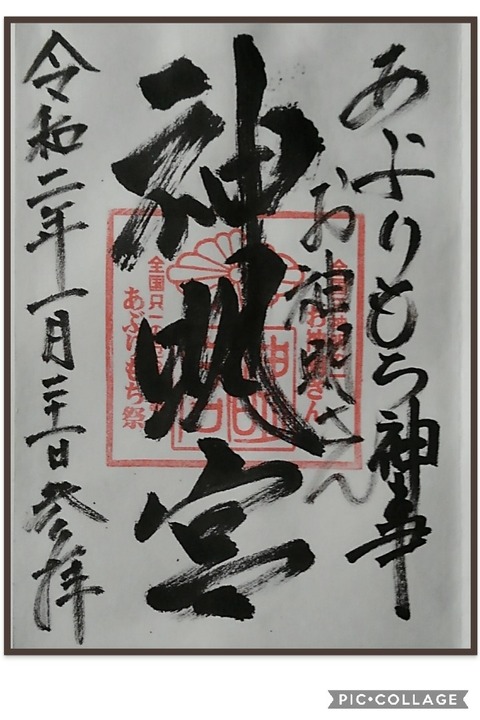 あぶりもち神事
お神明さん
神明宮
令和二年一月二十一日参拝
あぶりもち祭
PIC•COLLAGE